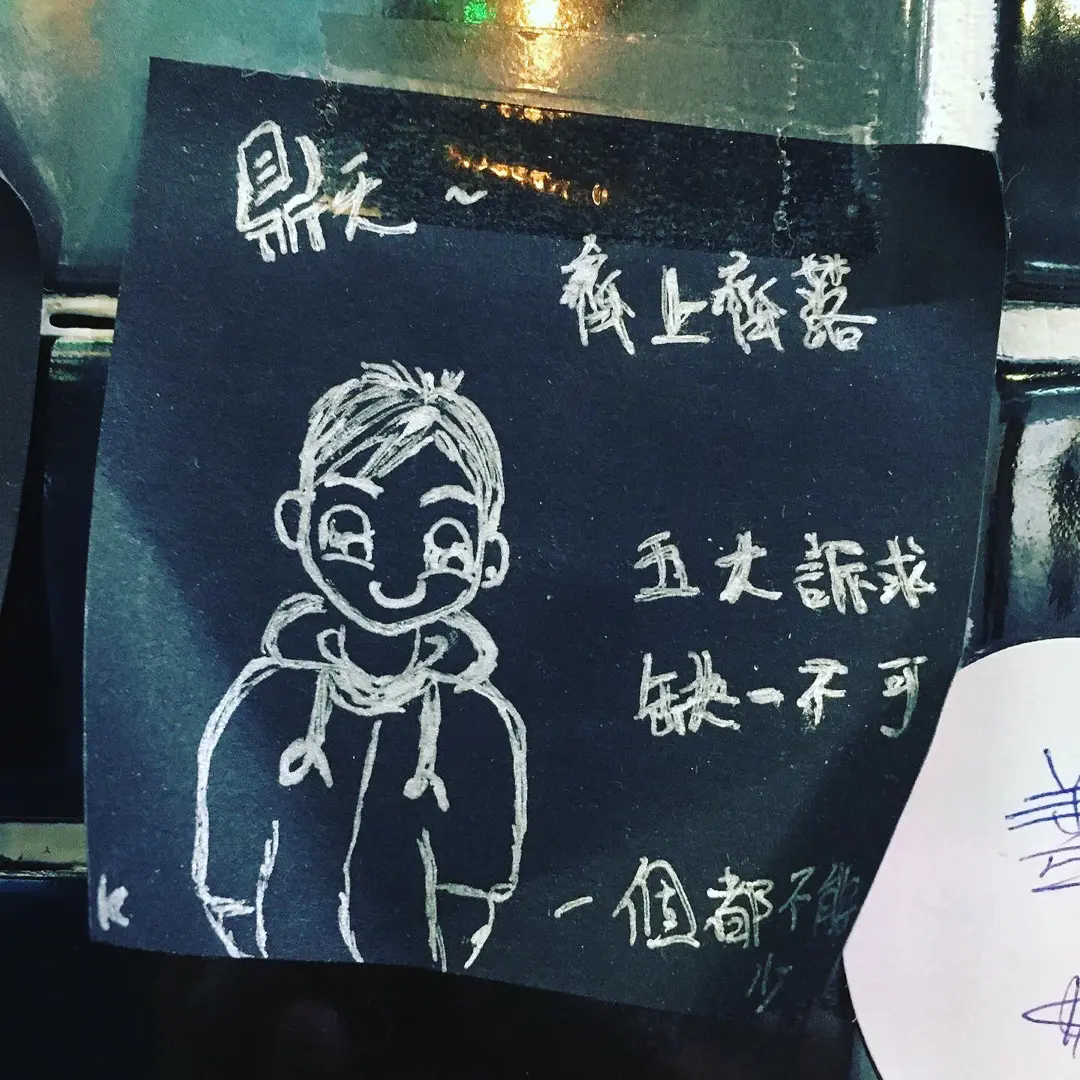 鼎天~
齊上齊落
五大訴求
缺一不可
一個都不能
少
K